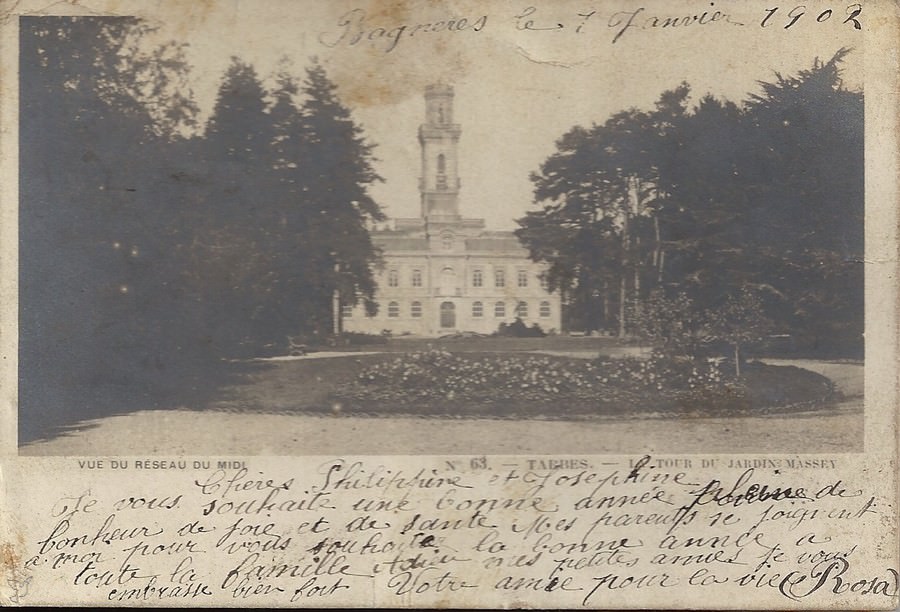 Bagneres le 7 Janvier 1902
VUE DU RÉSEAU DU MIDI
N° 63. — TARBES. — LA TOUR DU JARDIN MASSEY
Chères Philippine et Josephine
Je vous souhaite une bonne année pleine de
bonheur de joie et de santé Mes parents se joignent
a moi pour vous souhaiter la bonne année a
toute la famille Adieu mes petites amies je vous
embrasse bien fort Votre amie pour la vie (Rosa)